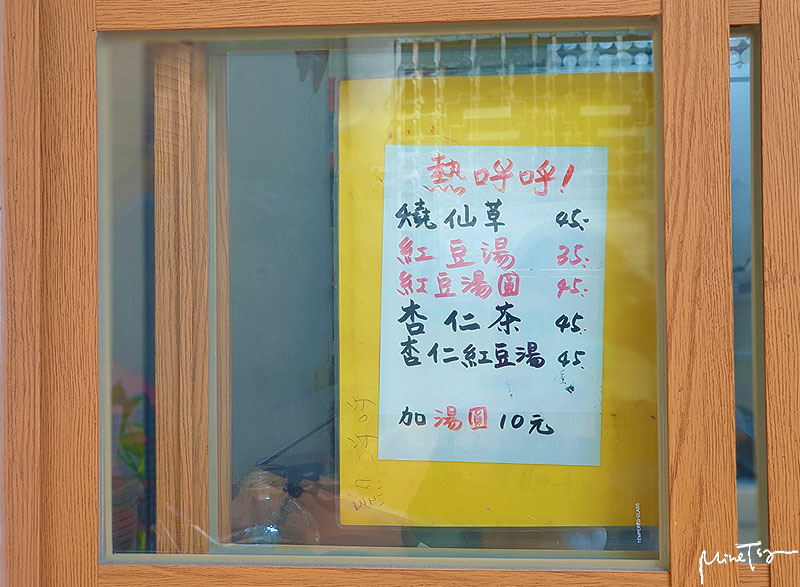 熱呼呼!
燒仙草 45.
紅豆湯 35.
紅豆湯圓 45.
杏仁茶 45.
杏仁紅豆湯 45.
加湯圓10元
TEMPERED GLASS